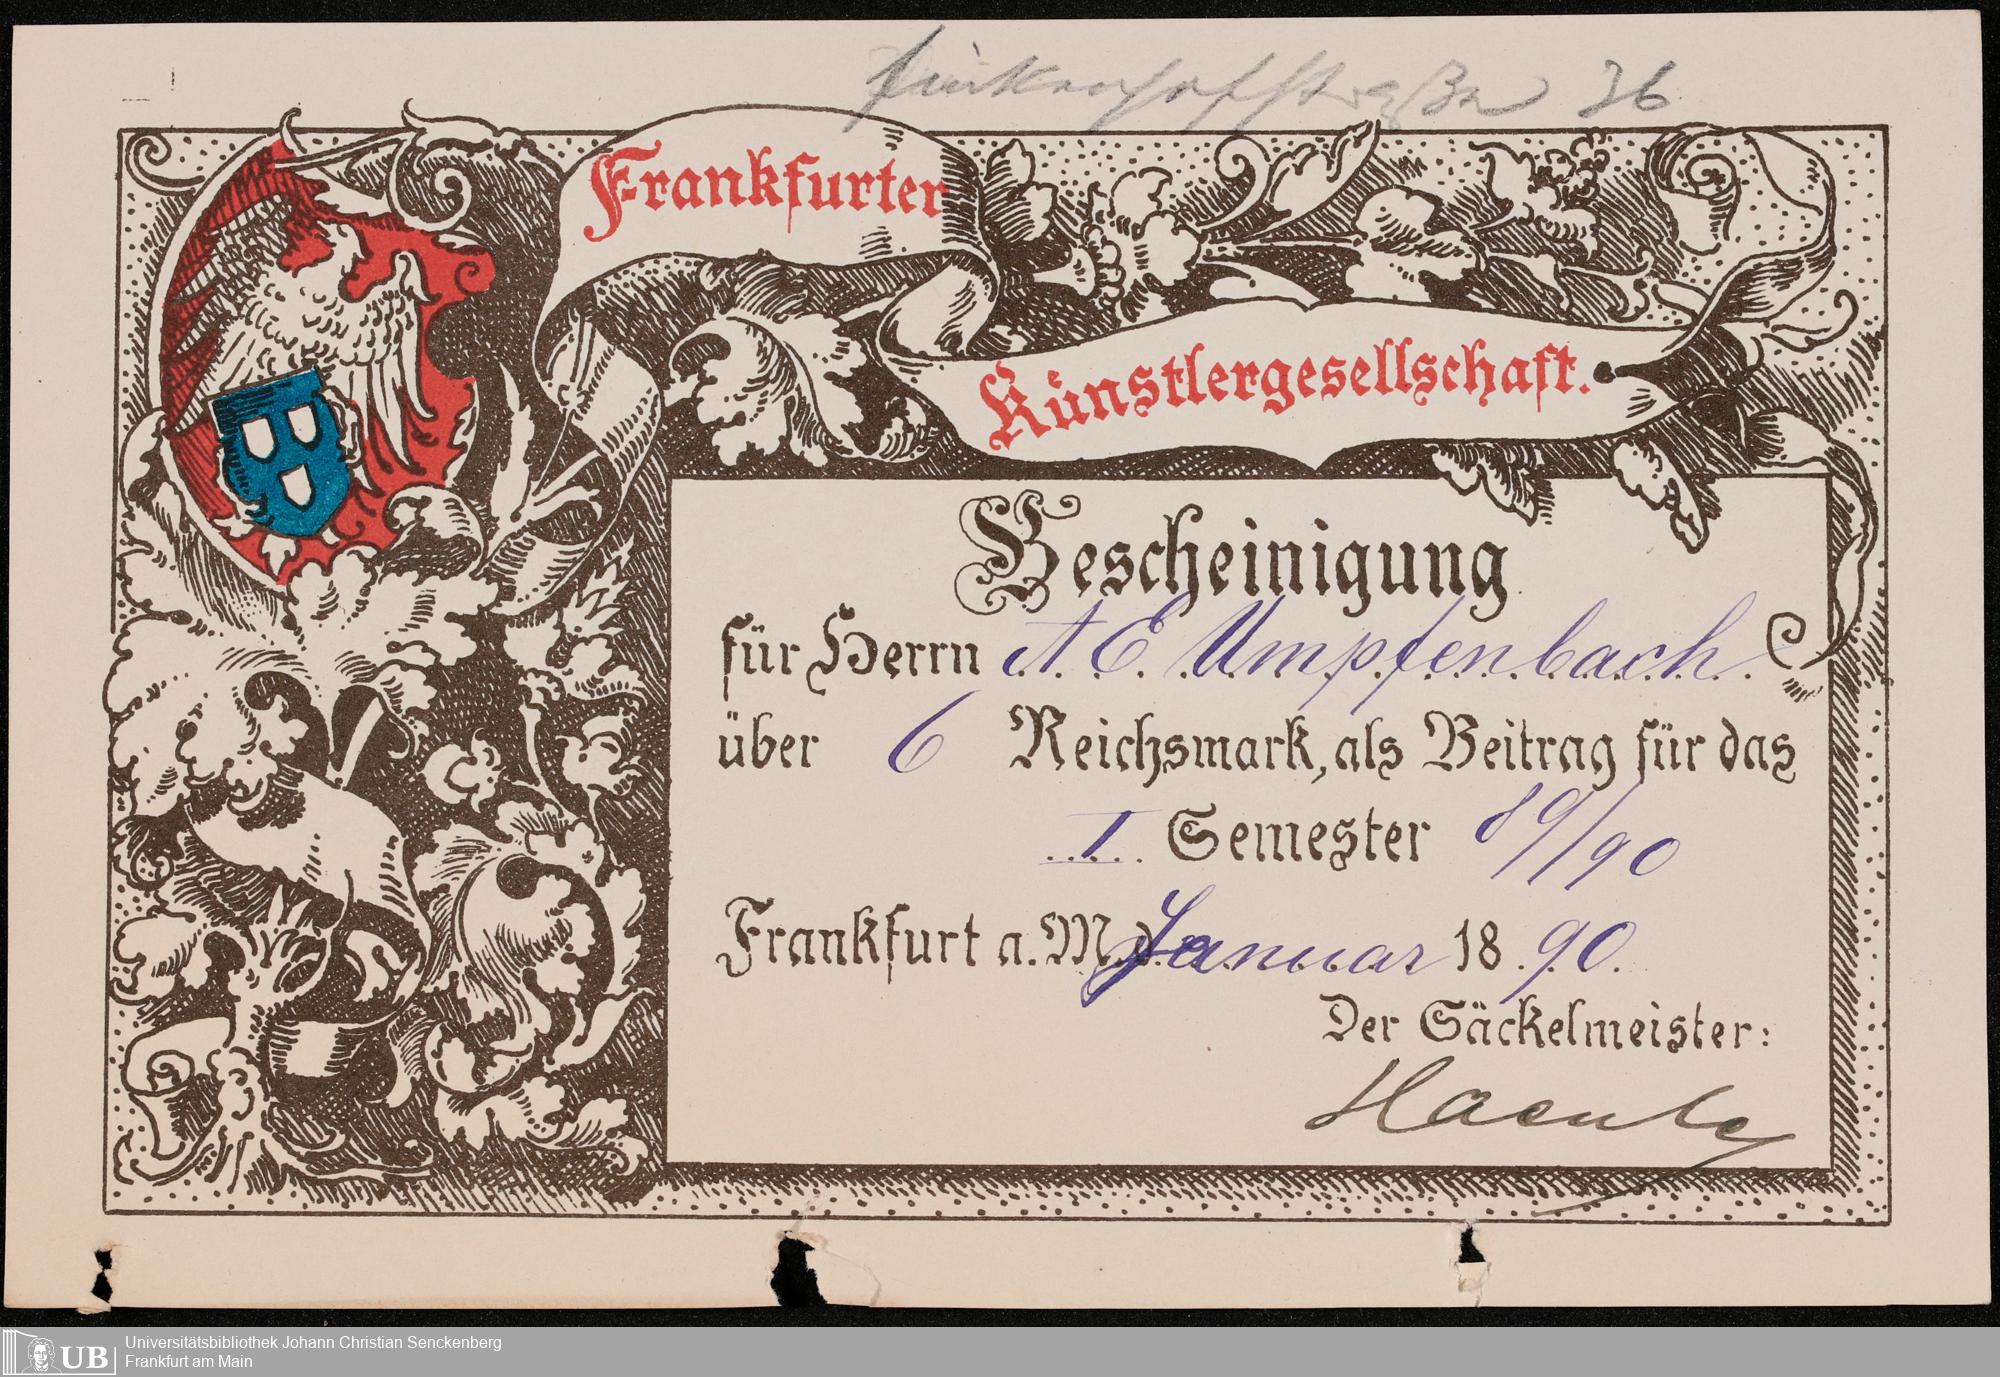 Finkenhofstraße 36
Frankfurter
Künstlergesellschaft.
Bescheinigung
für Herrn A. E. Umpfenbach
über 6 Reichsmark, als Beitrag für das
I Semester 89/90
Frankfurt a. M. d. Januar 1890.
Der Säckelmeister:
UB Universitätsbibliothek Johann Christian Senckenberg
Frankfurt am Main